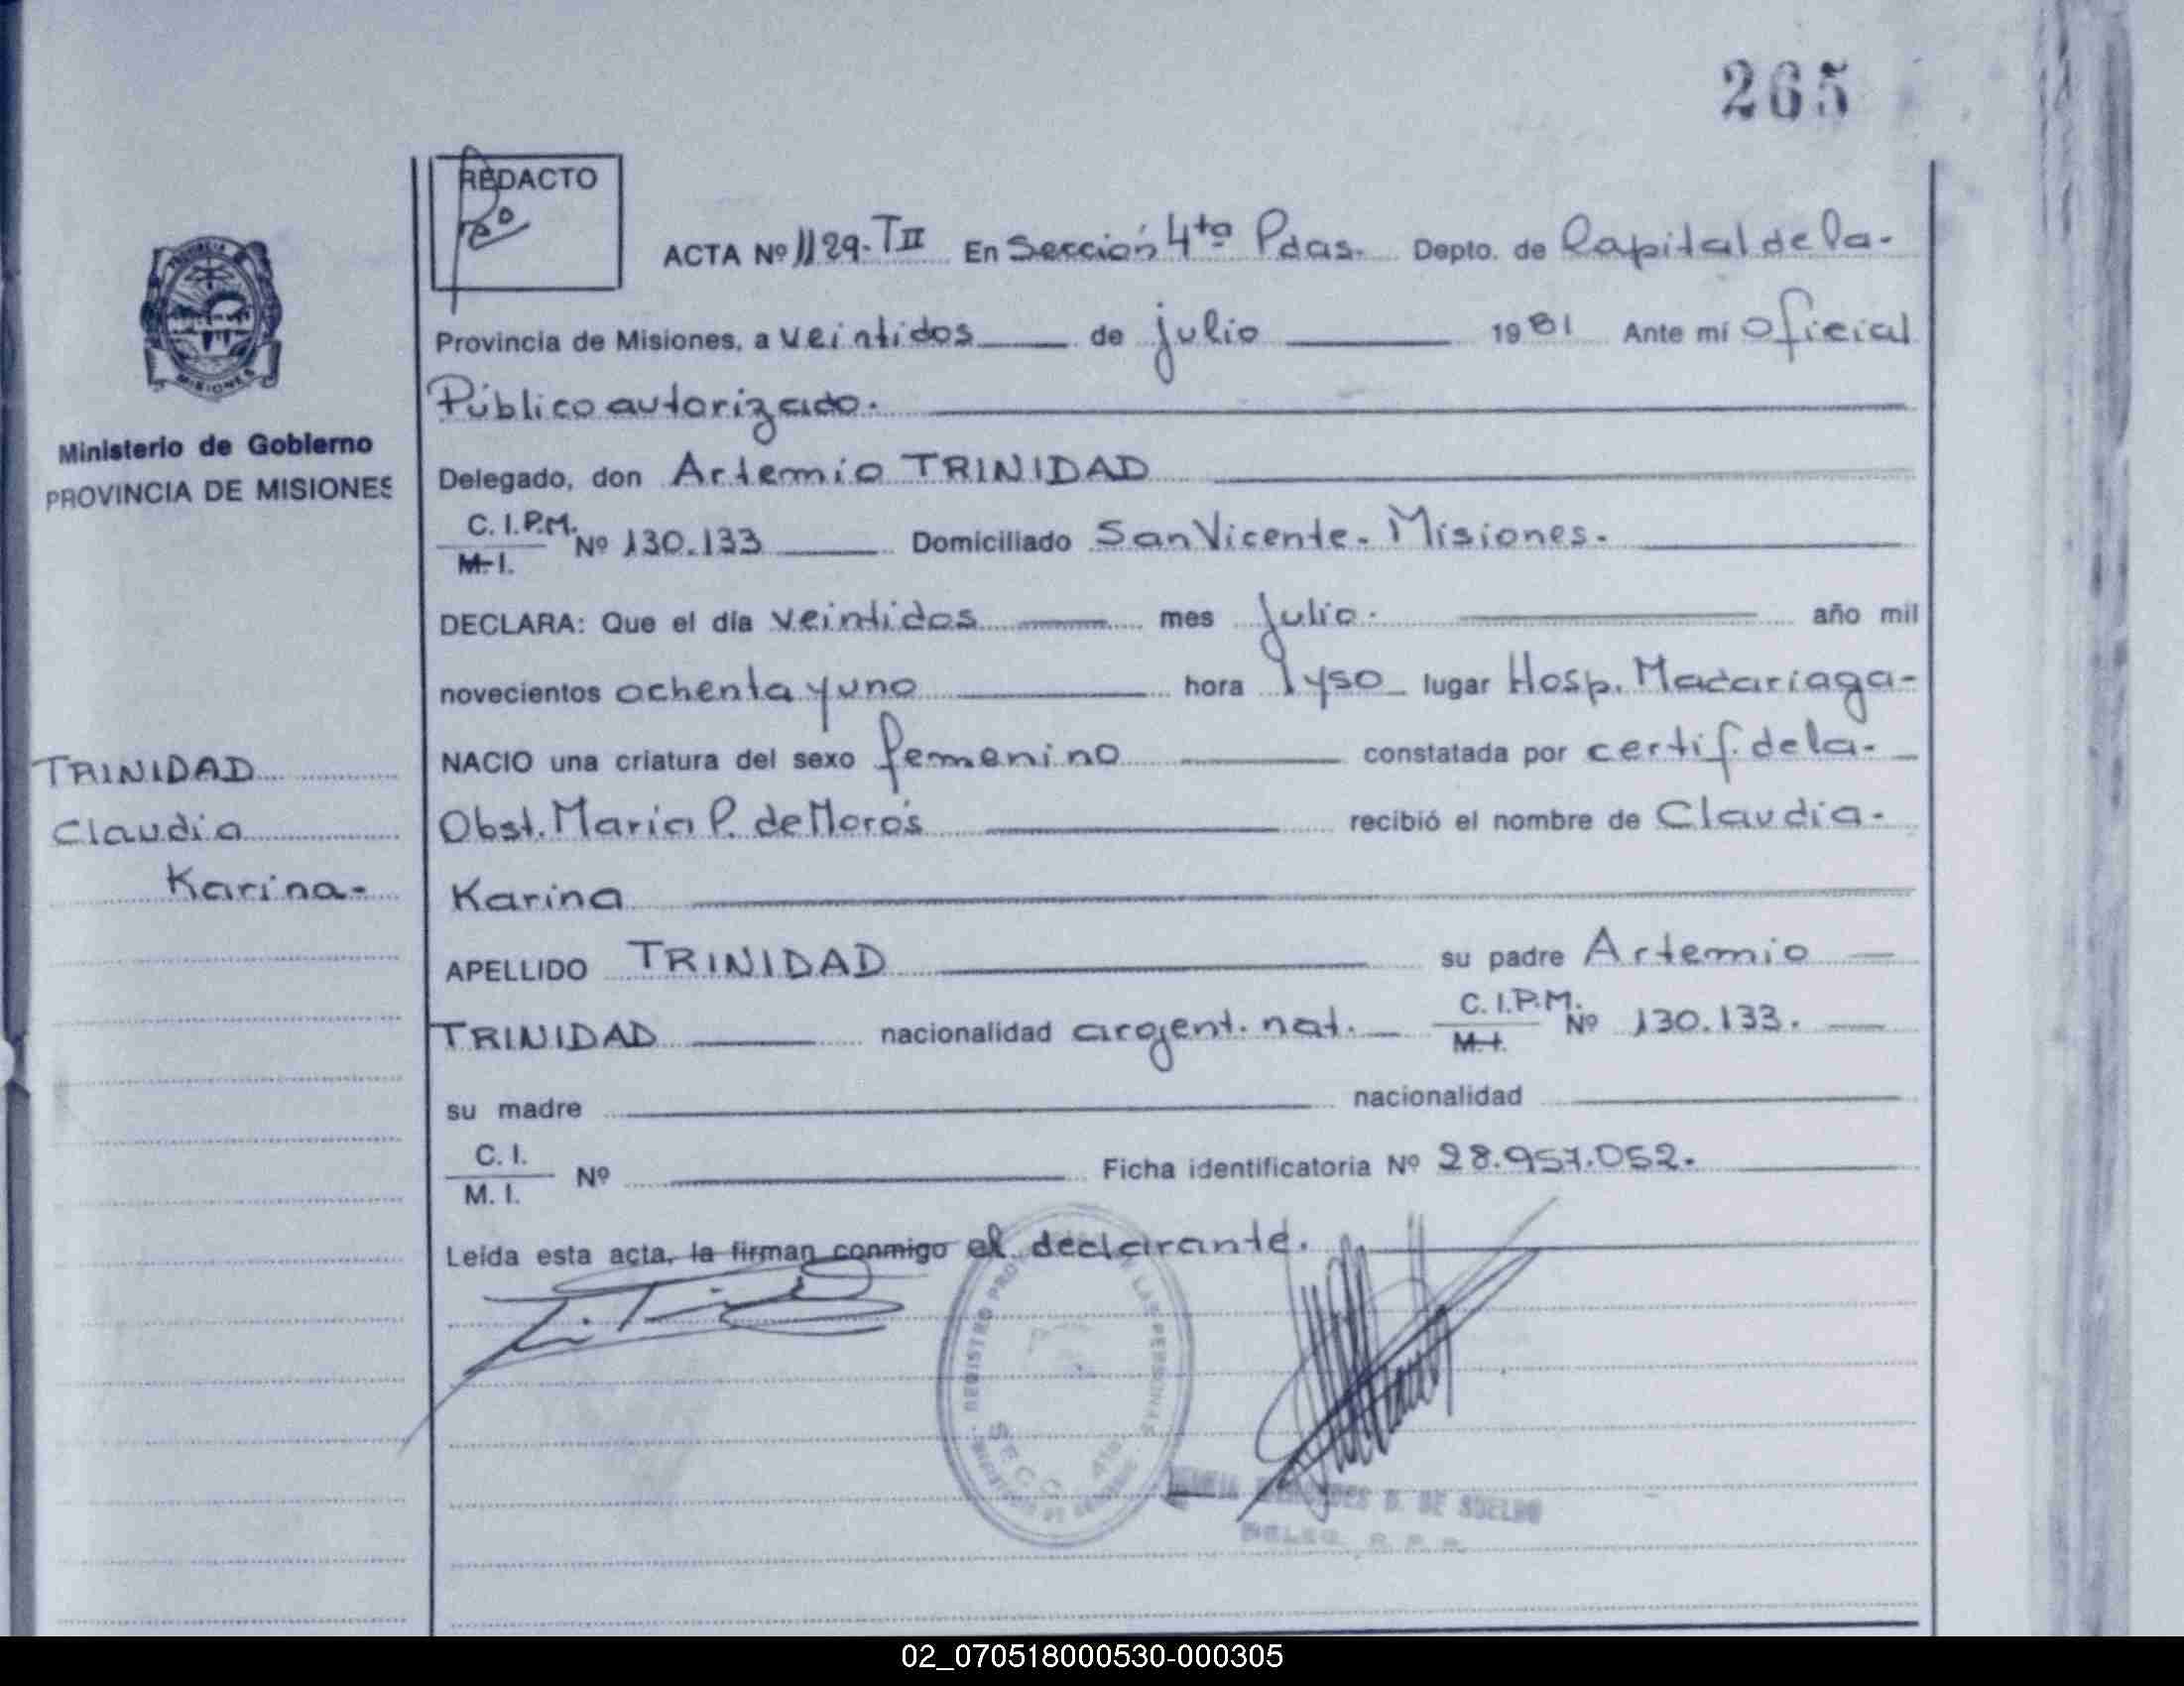 265
REDACTO
ACTA Nº 1129-TII En Sección 4ta Pdas. Depto. de Capital de la-
Provincia de Misiones, a veintidos de julio 1981 Ante mí Oficial
Público autorizado.
Delegado, don Artemio TRINIDAD
C.I.P.M.
M.I. Nº 130.133 Domiciliado San Vicente - Misiones.
DECLARA: Que el día veintidos mes julio. año mil
novecientos ochenta y uno hora 1y50 lugar Hosp. Madariaga-
NACIO una criatura del sexo femenino constatada por certif. de la-
Obst. Maria P. de Moros recibió el nombre de Claudia-
Karina
APELLIDO TRINIDAD su padre Artemio
TRINIDAD nacionalidad argent. nat. C.I.P.M.
M.I. Nº 130.133.
su madre nacionalidad
C. I.
M. I. Nº Ficha identificatoria Nº 28.957.052.
Leída esta acta, la firman conmigo el declarante.
Ministerio de Gobierno
PROVINCIA DE MISIONES
TRINIDAD
Claudia
Karina-
REGISTRO LAS PERSONAS
SECC 4ta
B. DE SUELDO
DELEG. R. P. P.
02_070518000530-000305